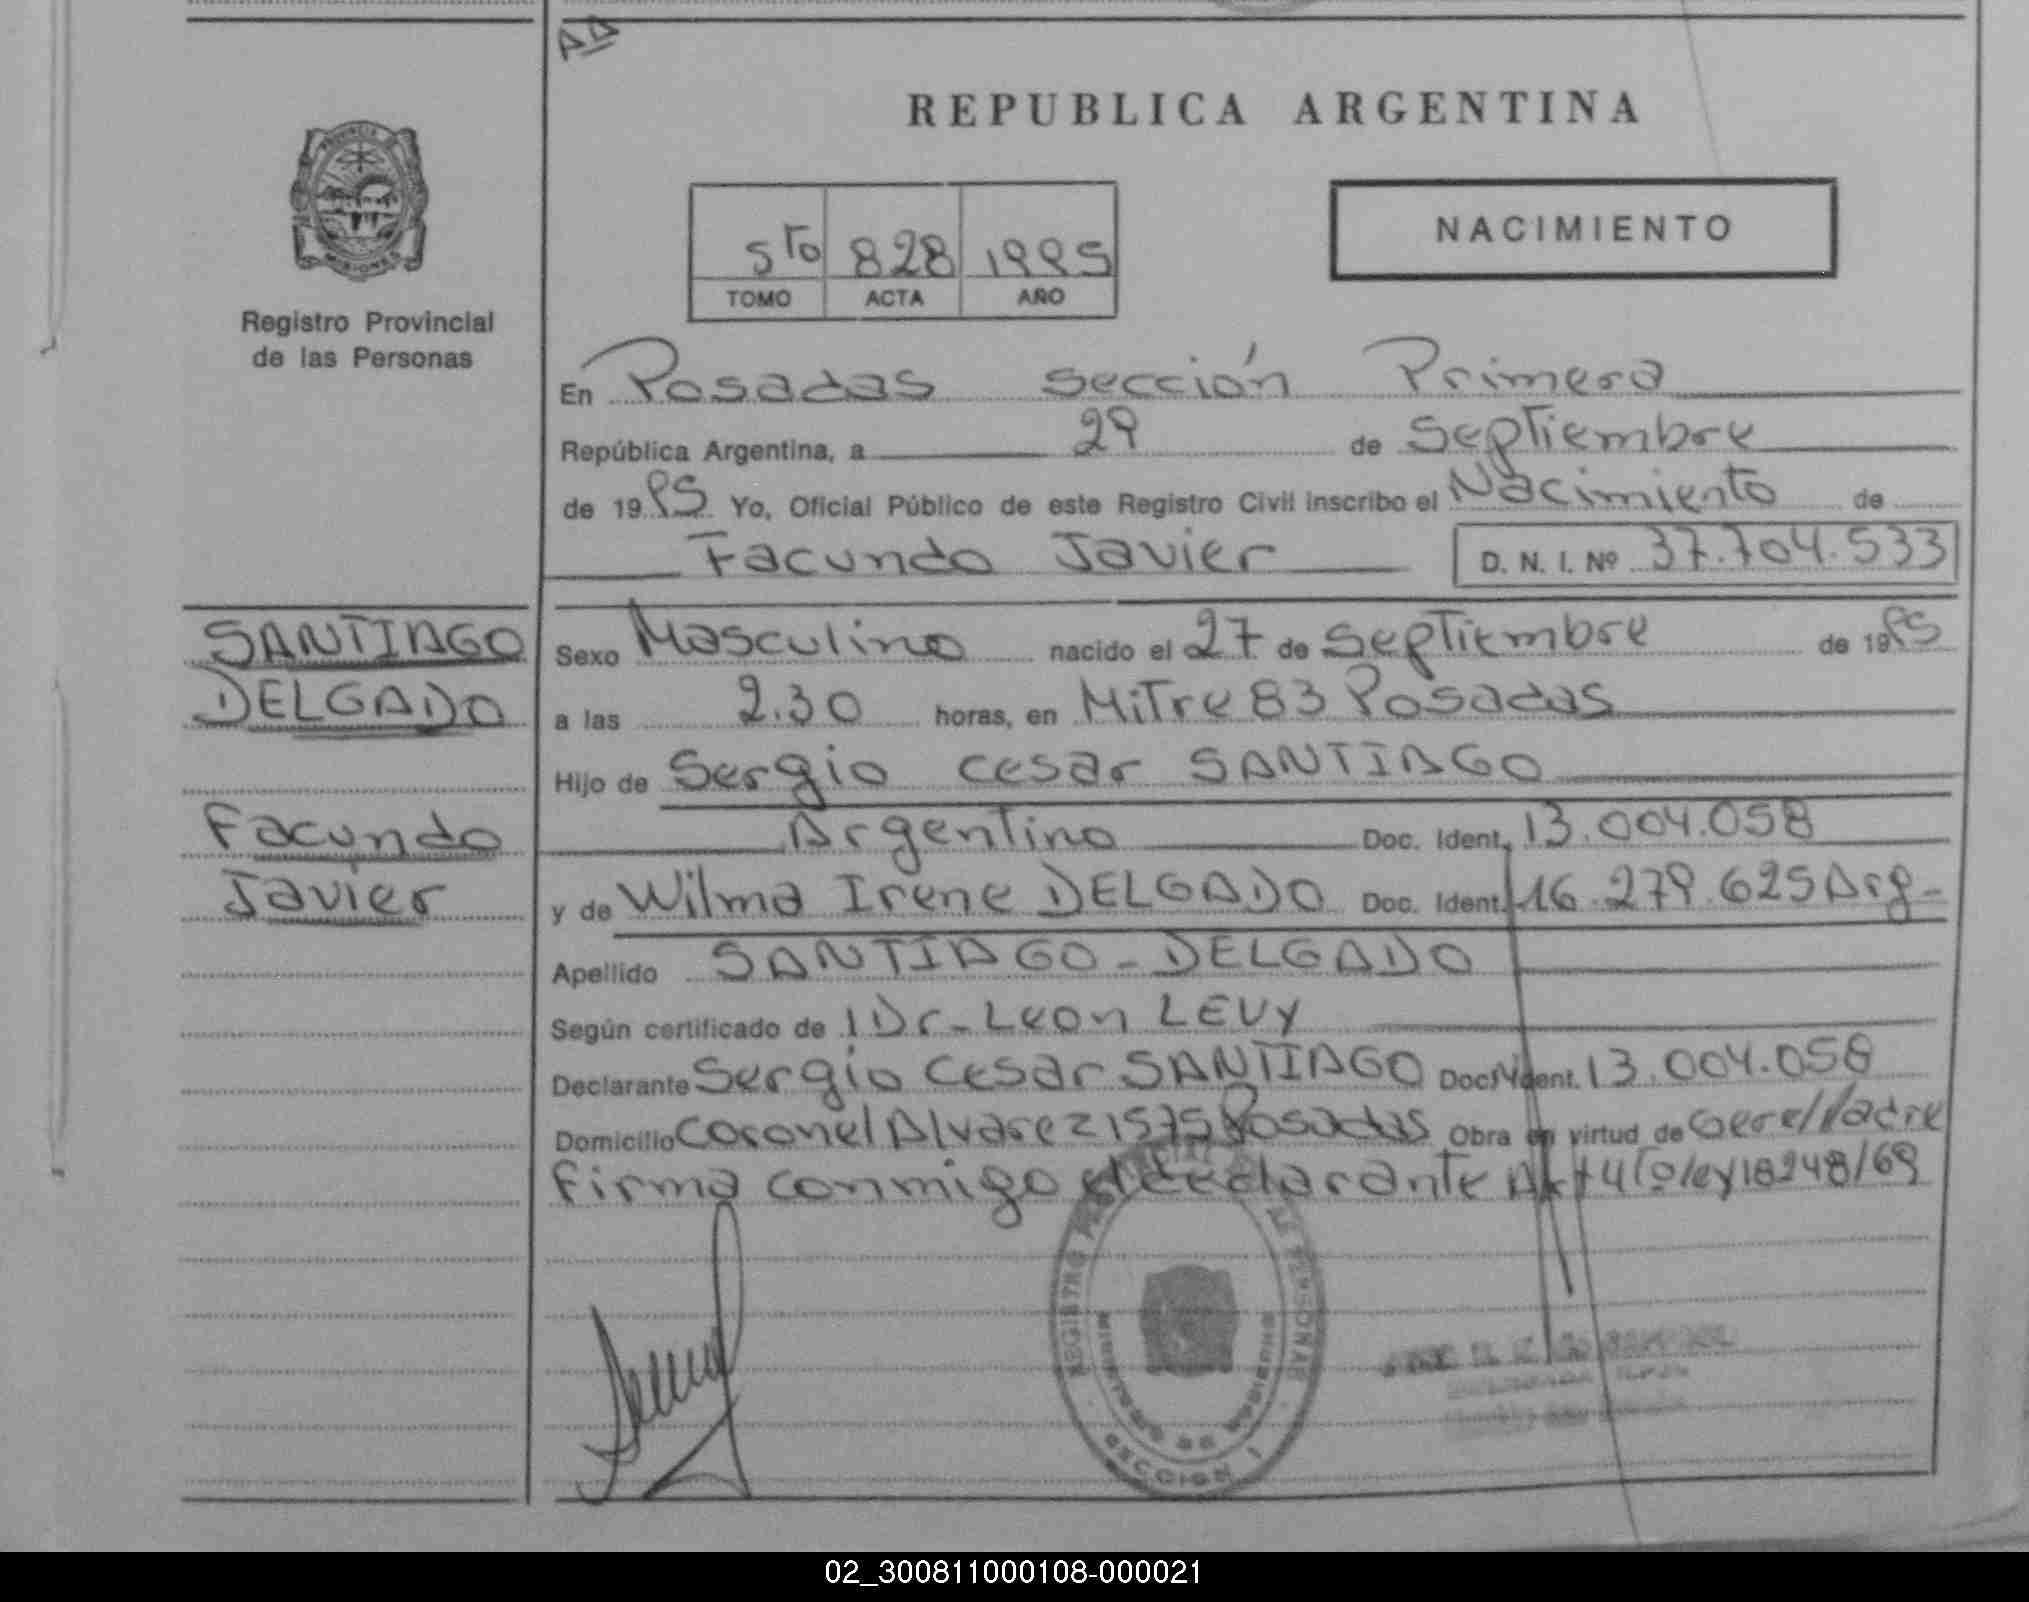 AD
REPUBLICA ARGENTINA
NACIMIENTO
5to 828 1995
TOMO ACTA AÑO
PROVINCIA DE
MISIONES
Registro Provincial
de las Personas
En Posadas sección Primera
República Argentina, a 29 de septiembre
de 1995 Yo, Oficial Público de este Registro Civil inscribo el Nacimiento de
Facundo Javier D. N. I. Nº 37.704.533
SANTIAGO
DELGADO
Facundo
Javier
Sexo Masculino nacido el 27 de septiembre de 1995
a las 2.30 horas, en Mitre 83 Posadas
Hijo de Sergio Cesar SANTIAGO
Argentino Doc. Ident. 13.004.058
y de Wilma Irene DELGADO Doc. Ident. 16.279.625 Arg-
Apellido SANTIAGO-DELGADO
Según certificado de Dr- Leon LEVY
Declarante Sergio Cesar SANTIAGO Doc. Ident. 13.004.058
Domicilio Coronel Alvarez 1575 Posadas Obra en virtud de Gere/Padre
firma conmigo el declarante Art 4to ley 18248/69
REGISTRO DE PERSONAS
MINISTERIO DE GOBIERNO
SECCION 1
02_300811000108-000021